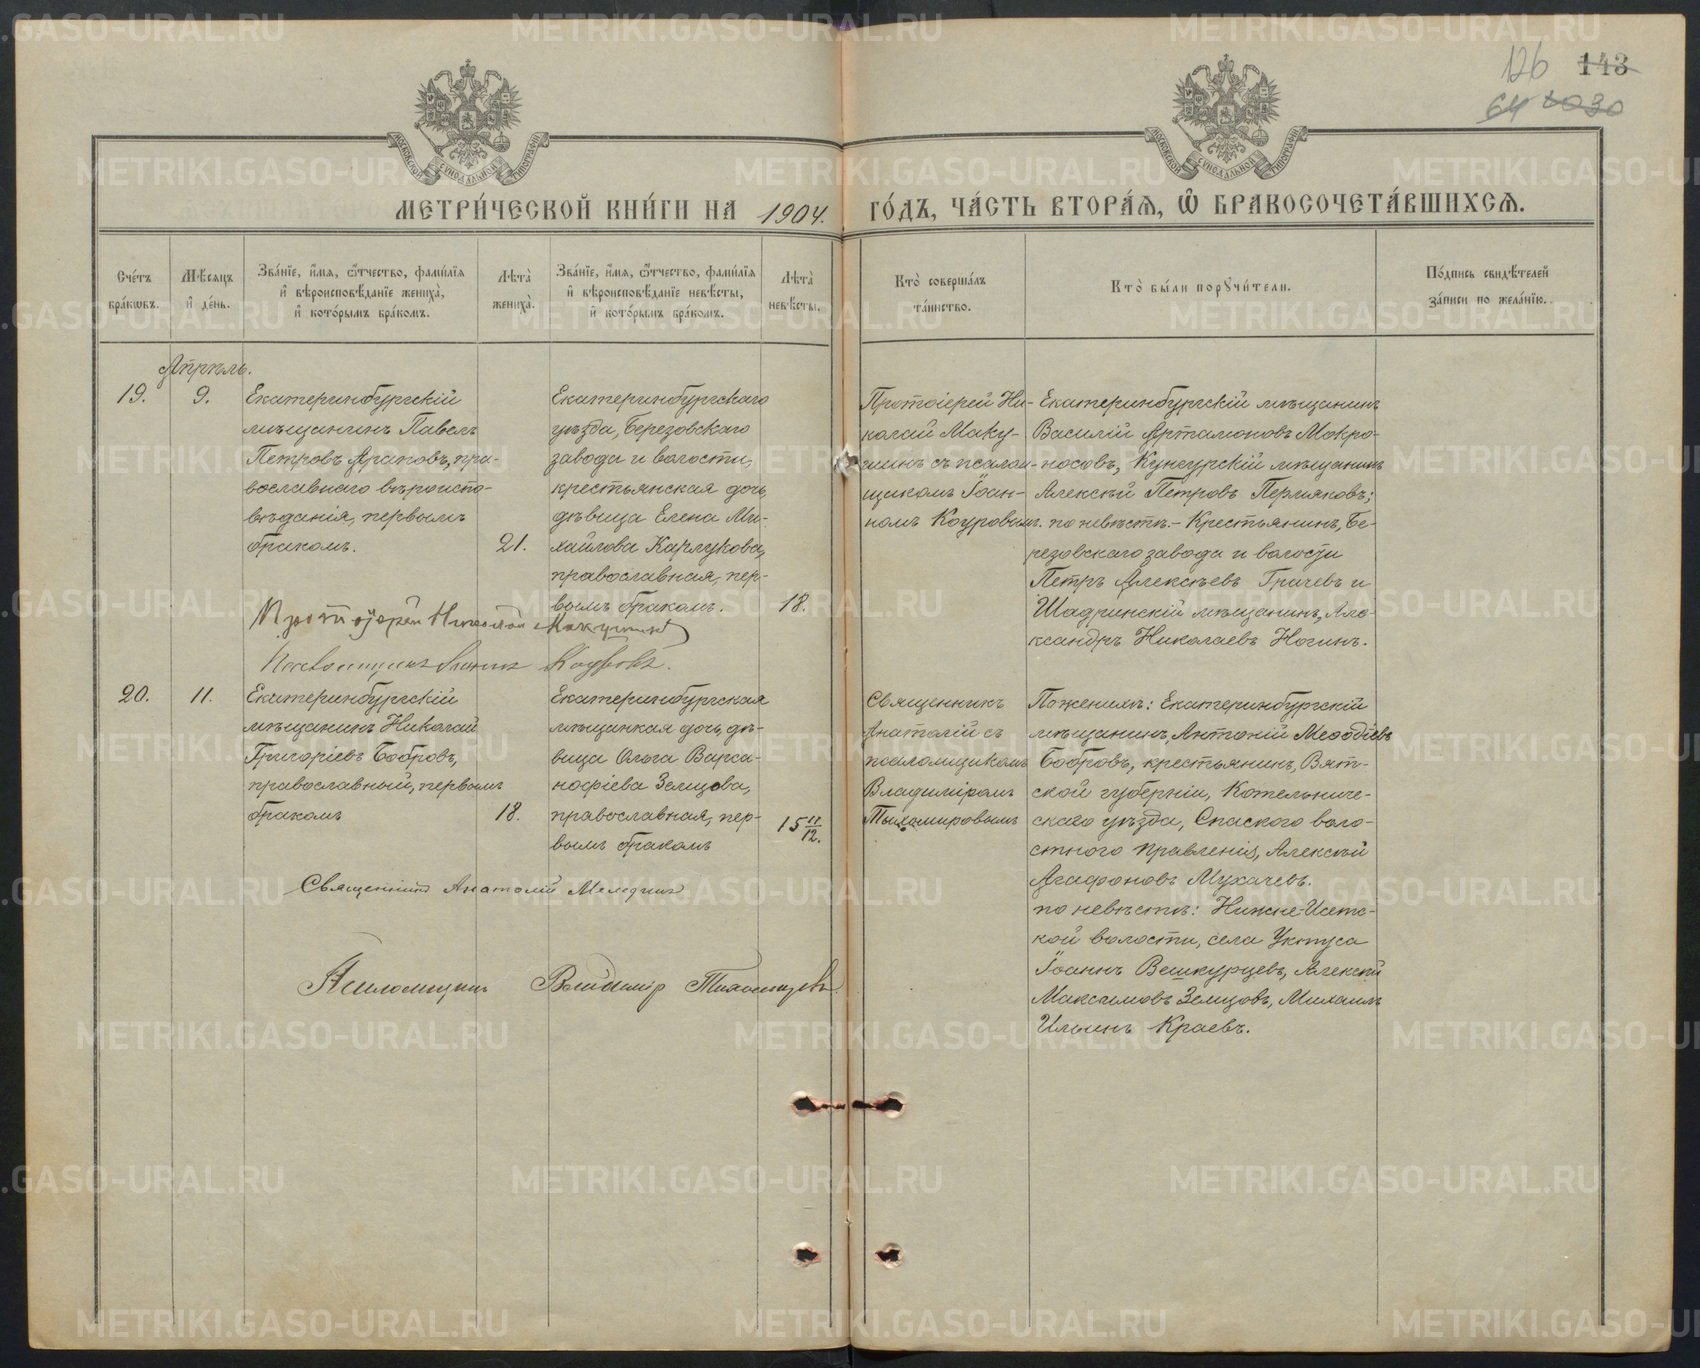 126 143
64 1030
МОСКОВСКОЙ СѴНОДАЛЬНОЙ ТИПОГРАФІИ
МОСКОВСКОЙ СѴНОДАЛЬНОЙ ТИПОГРАФІИ
МЕТРИ́ЧЕСКОЙ КНИ́ГИ НА 1904. ГО́ДЪ, ЧА́СТЬ ВТОРА́Ѧ, Ѽ БРАКОСОЧЕТА́ВШИХСѦ.
Сче́тъ
бра́кѡвъ.
Мѣ́сѧцъ
и҆ де́нь.
Зва́нїе, и҆́мѧ, ѻ҆́тчество, фами́лїѧ
и҆ вѣроисповѣ́данїе жениха̀,
и҆ кото́рымъ бра́комъ.
Лѣта̀
жениха̀.
Зва́нїе, и҆́мѧ, ѻ҆́тчество, фами́лїѧ
и҆ вѣроисповѣ́данїе невѣ́сты,
и҆ кото́рымъ бра́комъ.
Лѣта̀
невѣ́сты.
Кто̀ соверша́лъ
та́инство.
Кто̀ бы́ли порꙋчи́тели.
По́дпись свидѣ́телей
за́писи по жела́нїю.
Апрѣль.
19.
9.
Екатеринбургскій
мѣщанинъ Павелъ
Петровъ Араповъ, пра-
вославнаго вѣроиспо-
вѣданія, первымъ
бракомъ.
21.
Екатеринбургскаго
уѣзда, Березовскаго
завода и волости,
крестьянская дочь,
дѣвица Елена Ми-
хайлова Карлукова,
православная, пер-
вымъ бракомъ.
18.
Протоіерей Ни-
колай Маку-
шинъ съ псалом-
щикомъ Іоан-
номъ Коуровымъ.
Екатеринбургскій мѣщанинъ
Василій Артамоновъ Мокро-
носовъ, Кунгурскій мѣщанинъ
Алексѣй Петровъ Перляковъ;
по невѣстѣ.- Крестьянинъ, Бе-
резовскаго завода и волости
Петръ Алексѣевъ Гричевъ и
Шадринскій мѣщанинъ, Але-
ксандръ Николаевъ Ногинъ.
Протоіерей Николай Макушинъ
Псаломщикъ Іоаннъ Коуровъ.
20.
11.
Екатеринбургскій
мѣщанинъ Николай
Григоріевъ Бобровъ,
православный, первымъ
бракомъ
18.
Екатеринбургская
мѣщанская дочь, дѣ-
вица Ольга Варса-
нофіева Земцова,
православная, пер-
вымъ бракомъ
15 11/12.
Священникъ
Анатолій съ
псаломщикомъ
Владиміромъ
Тихомировымъ
По женихѣ: Екатеринбургскій
мѣщанинъ, Антоній Меѳодіевъ
Бобровъ, крестьянинъ, Вят-
ской губерніи, Котельниче-
скаго уѣзда, Спаского воло-
стного правленія, Алексѣй
Агафоновъ Мухачевъ.
по невѣстѣ: Нижне-Исетс-
кой волости, села Уктуса
Іоаннъ Вешкурцевъ, Алексѣй
Максимовъ Земцовъ, Михаилъ
Ильинъ Краевъ.
Священникъ Анатолій
Псаломщикъ Владиміръ Тихомировъ